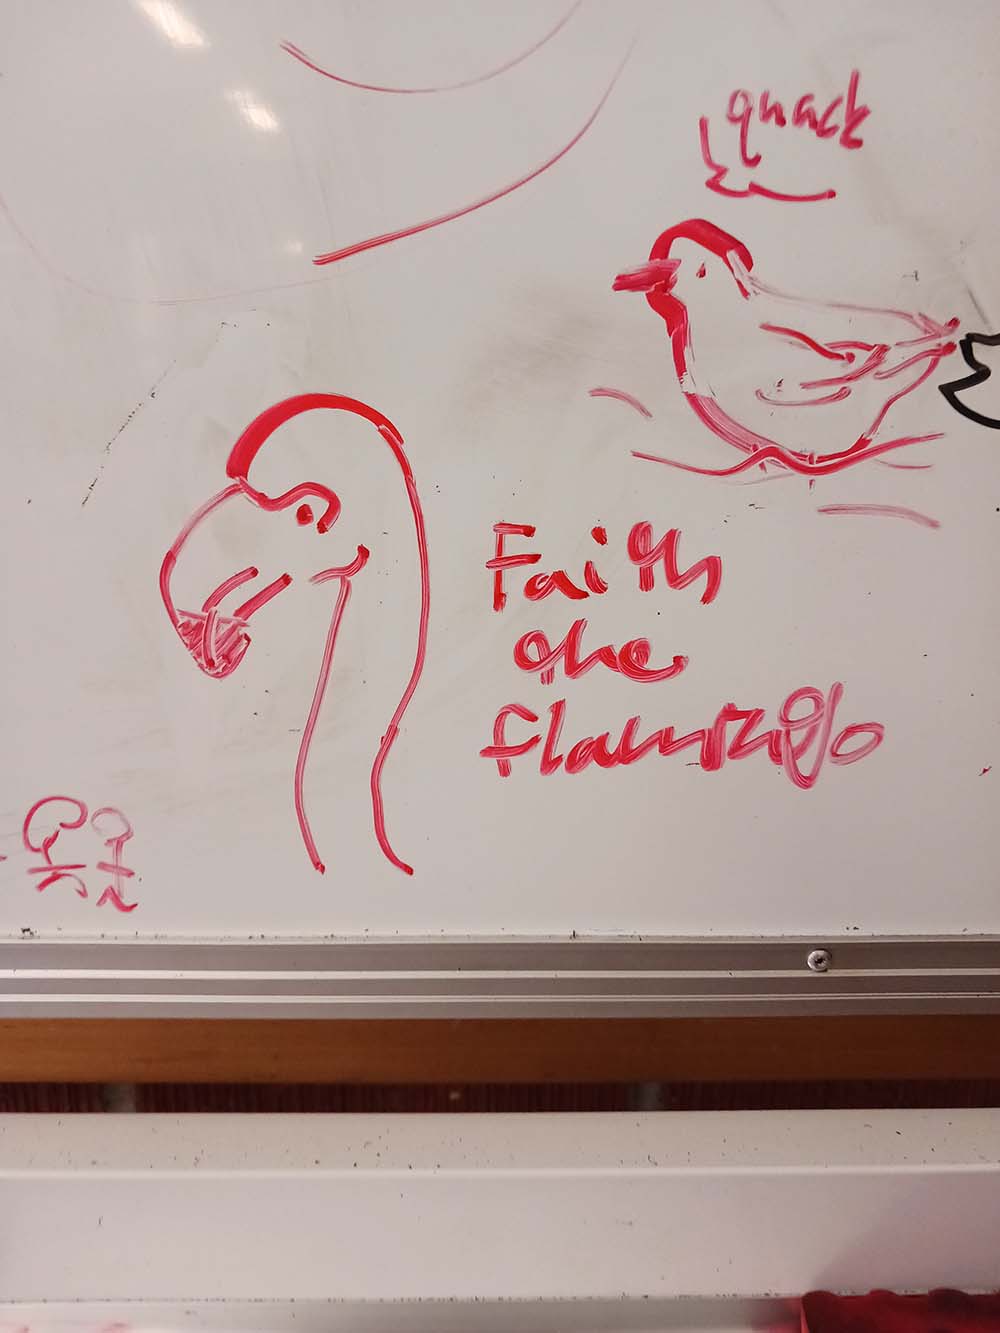 quack
Faith
the
flamingo